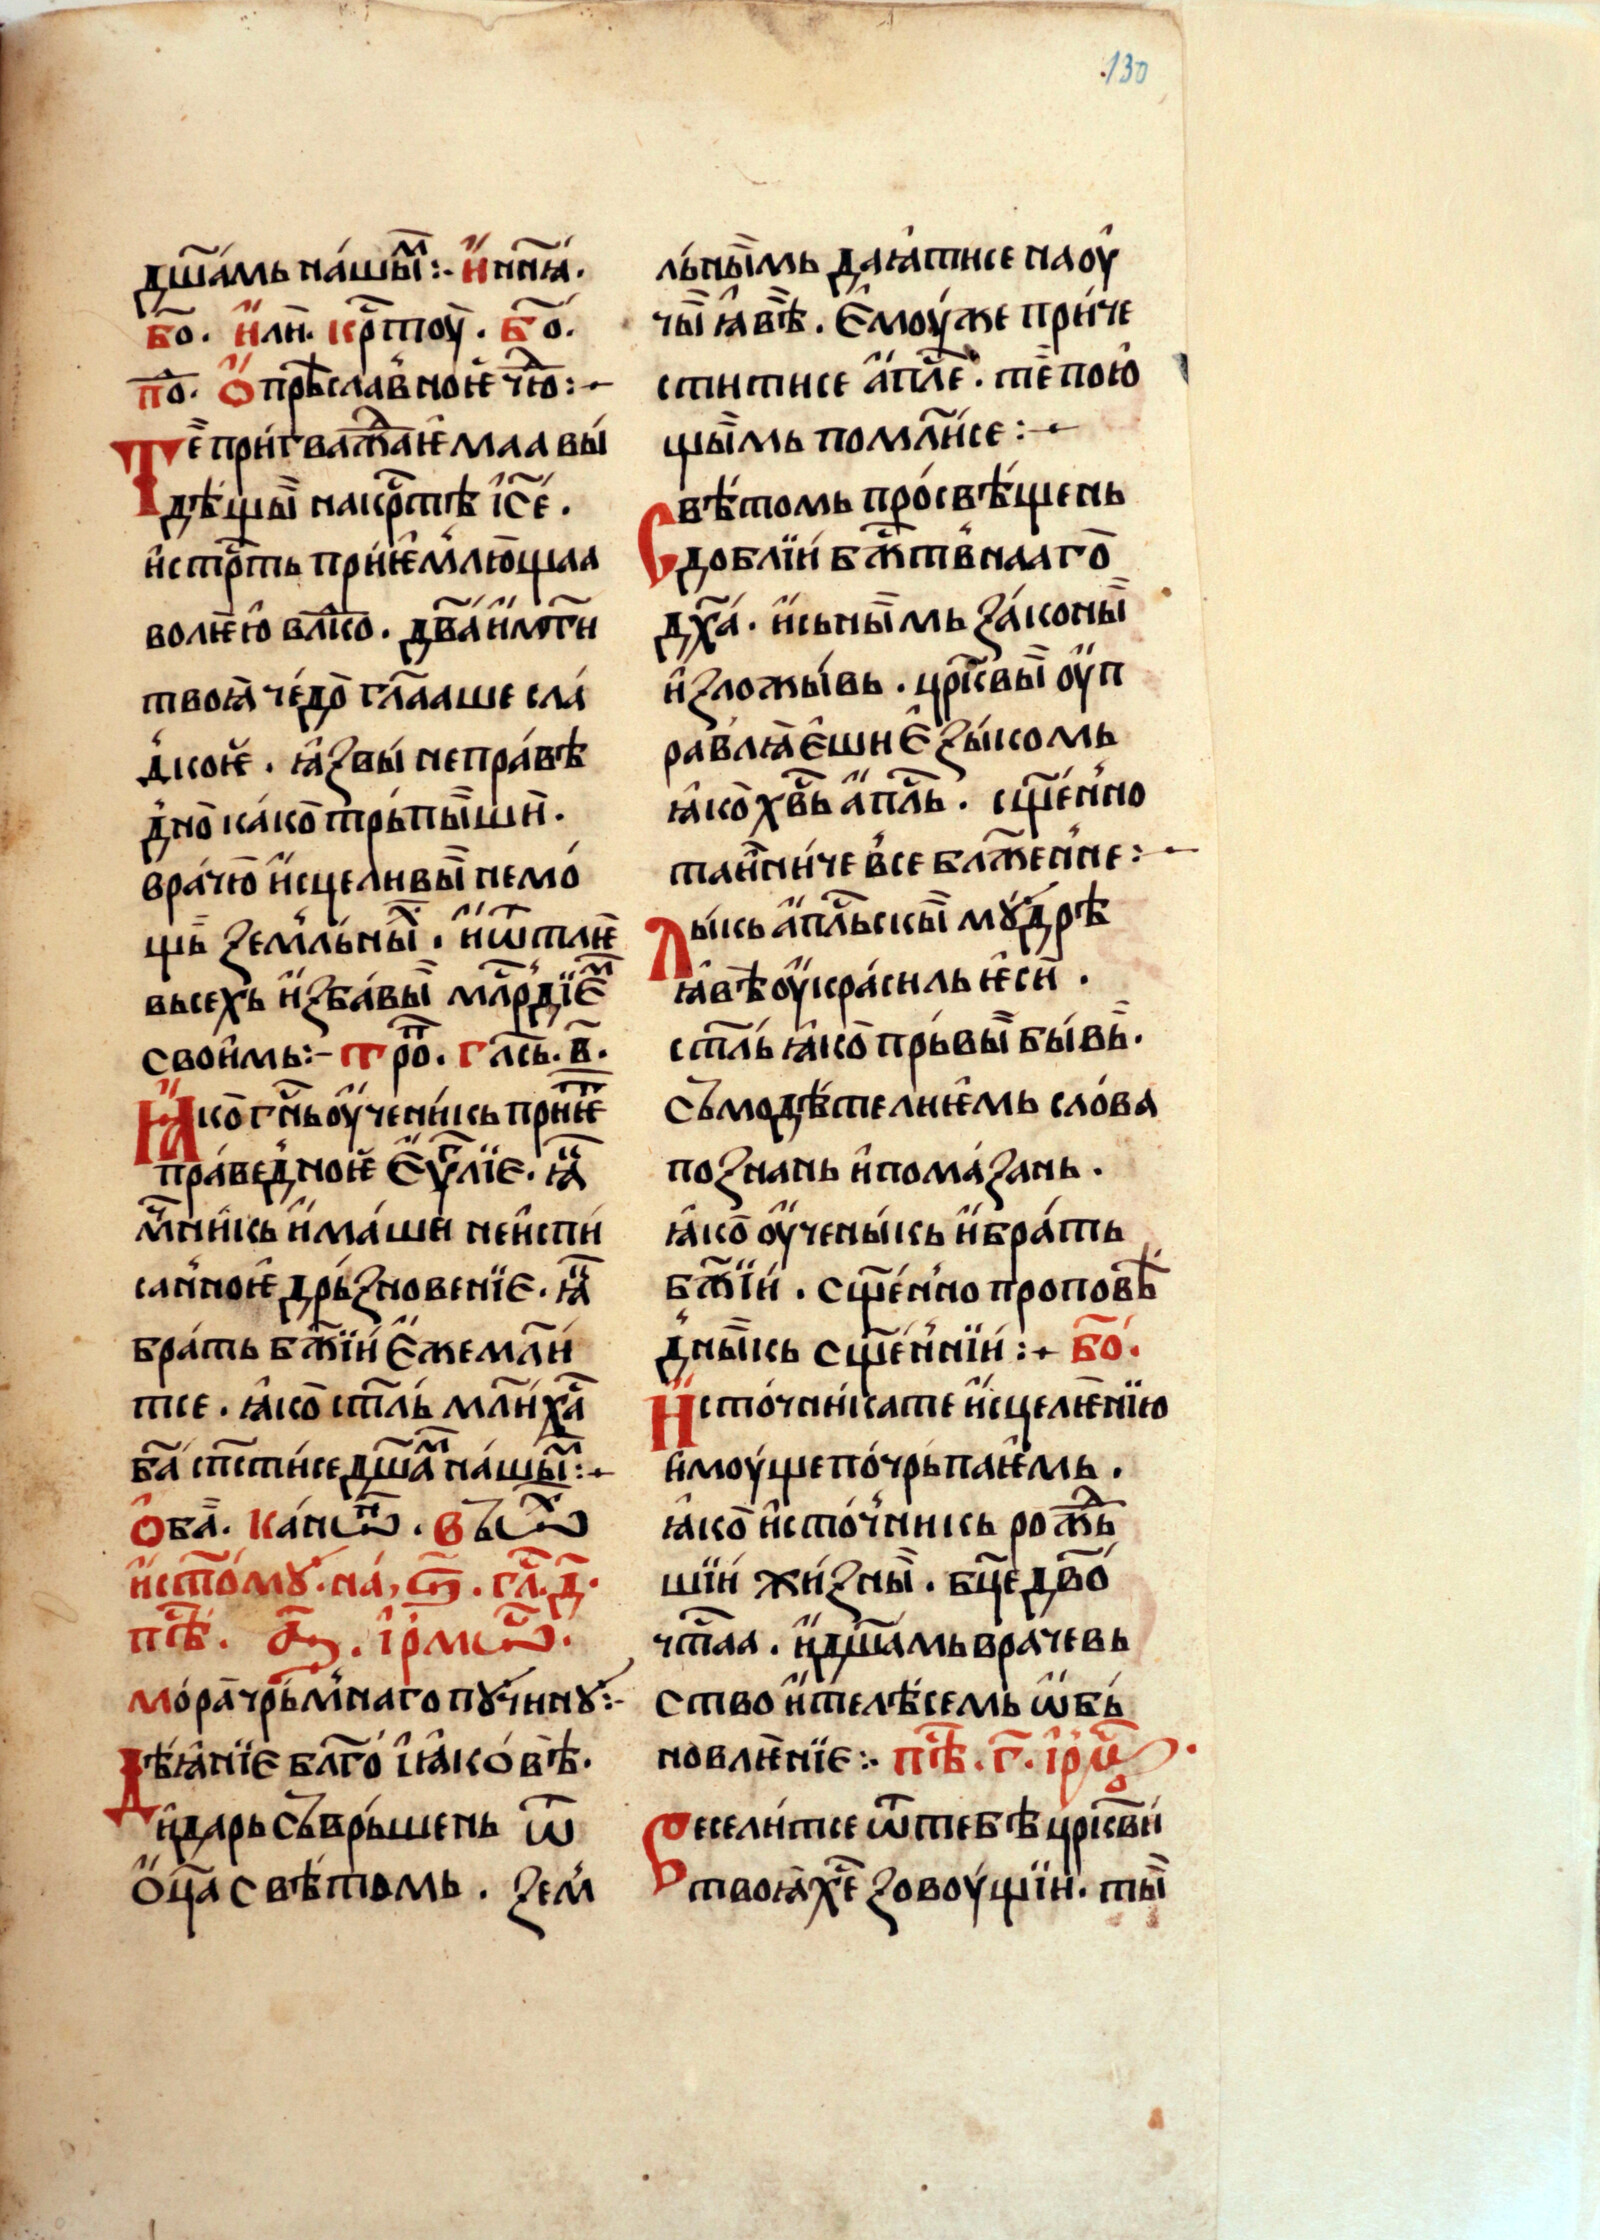 130
дш҃а́мь на́шы҃мⷨ :· и҆ нн҃ꙗ́ .
бо҃ . и҆ли̏ . крⷭ҇тоу̑ . бо҃ .
по҃ . Ѽ прѣⷭ҇сла́вное чю҃дⷣо :·
Те̏ при́гважⷣаѥмаа ви́
дѣ́щыи̏ на крⷭ҇тѣ і҆с҃е .
и҆ стрⷭ҇ть прїи́ѥмлю̏щаа
волѥю̑ влⷣко . дв҃а и҆ мт҃и
твоꙗ̏ че́до̏ гл҃ааше сла́
дкоѥ . ꙗ҆́звы непра́вѣ
дно̏ ка́ко̏ трьпы̏ши̏ .
вра́чю̏ и҆сцели́выи̏ немо́
щь̏ земльны́хⷯ . и҆ ѿ тлѥ̏
вьсехь и҆зба́вы̏ млⷭ҇рдїѥмⷨ
свои̑мь :· тро҃пⷫ . гла́сⷭ҇ь . в҃ .
Ꙗ҆ко̏ гн҃ь оу҆чени́кь прїиѥⷮ
пра́ведноѥ еѵⷢ҇лїе . ꙗ҆̏
мч҃ни́кь и҆маши неи҆спи́
са́нноѥ дрьзновенїе . ꙗ҆̏
бра́ть бж҃їи е҆же мл҃и́
тсе . ꙗ҆ко̏ ст҃ль мл҃и х҃а
б҃а сп҃сти́се дш҃амⷨ на́шы҃мⷨ :·
Ѻ҆ба̏ . ка́нѡⷩ҇ . въ ѡⷯ
и҆ ст҃о́мꙋ . на́ , ѕ҃ . гл҃а . д҃ .
пⷭ҇ѣ . а҃ . і҆рмѡⷭ҇ .
мо́ра̏ чрьмна́го пꙋчи́нꙋ :·
Дѣꙗ҆нїе бл҃го̑ і҆ꙗ҆ко́вѣ .
и҆ дарь съврьшень ѿ
ѻ҆ц҃а свѣ́томь . зем
льны҃мь даꙗ҆тисе наоу̑
чы̏ ꙗ҆вѣ̏ . е҆моу́же при́че
стити́се а҆пⷭ҇ле . те̏ пою̑
щы҃мь помл҃и́се :·
Свѣ́томь про́свѣ́щень
доблїи бжⷭ҇твнааго̏
дх҃а́ . и҆сьны҃мь за́коны̏
и҆зложы́вь . црⷦ҇вы̏ оу҆п
равлꙗ̏е҆ши е҆зы́комь
ꙗ҆ко̏ хв҃ь а҆пⷭ҇ль . сщ҃е́нно
таи́нниче все блаж҃енне :·
Лы́кь а҆пⷭ҇льскы̏ мꙋ́дрѣ
ꙗ҆вѣ оу҆кра́силь ѥси̏ .
ст҃ль ꙗ҆ко̏ прьвы̏ бы́вь̏ .
съмодѣ́телнѥмь сло́ва
познань и҆ пома́зань .
ꙗ҆ко̏ оу҆чены́кь и҆ бра́ть
бж҃їи . сщ҃е́нно проповѣ̏
дны̏кь сщ҃е́ннїи :· бо҃ .
И҆сто́чника те и҆сцелѥнїю
и҆моу́ще по́чрьпаѥмь .
ꙗ҆ко̏ и҆сто́чникь рожⷣь
шїи жи́зны̏ . бц҃е дв҃о
чⷭ҇таа . и҆ дш҃амь вра́чевь
ство и҆ телѣ́семь ѡ҆бь
новлѥнїе :· пⷭ҇ѣ . г҃ . і҆рмⷭ҇о
Весели́тсе ѿ тебѣ црⷦ҇ви
твоꙗ̏ х҃е зовоу́щїи . ты̏